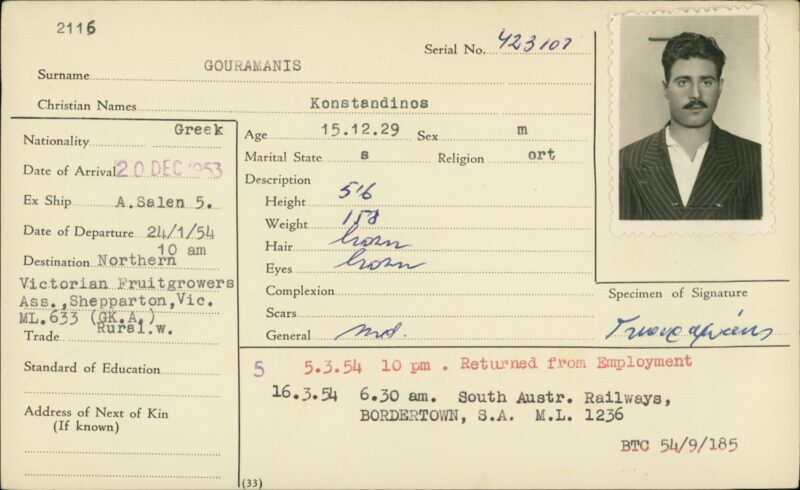 2116
Serial No. 423107
Surname GOURAMANIS
Christian Names Konstandinos
Nationality Greek
Date of Arrival 20 DEC 1953
Ex Ship A.Salen 5.
Date of Departure 24/1/54
10 am
Destination Northern
Victorian Fruitgrowers
Ass.,Shepparton,Vic.
ML.633 (GK.A.)
Trade Rural.w.
Standard of Education
Address of Next of Kin
(If known)
Age 15.12.29 Sex m
Marital State s Religion ort
Description
Height 5'6
Weight 158
Hair brown
Eyes brown
Complexion
Scars
General md.
Specimen of Signature
5 5.3.54 10 pm . Returned from Employment
16.3.54 6.30 am. South Austr. Railways,
BORDERTOWN, S.A. M.L. 1236
BTC 54/9/185
(33)